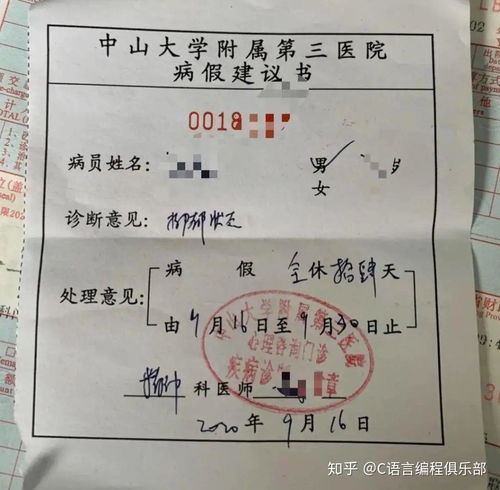 中山大学附属第三医院
病假建议书
0018
病员姓名:
男
女
岁
诊断意见: 抑郁状态
处理意见:
病 假 全休拾肆天
由9月16日至9月30日止
中山大学附属第三医院
心理咨询门诊
疾病诊
章
精神科医师
2020年9月16日
知乎 @C语言编程俱乐部